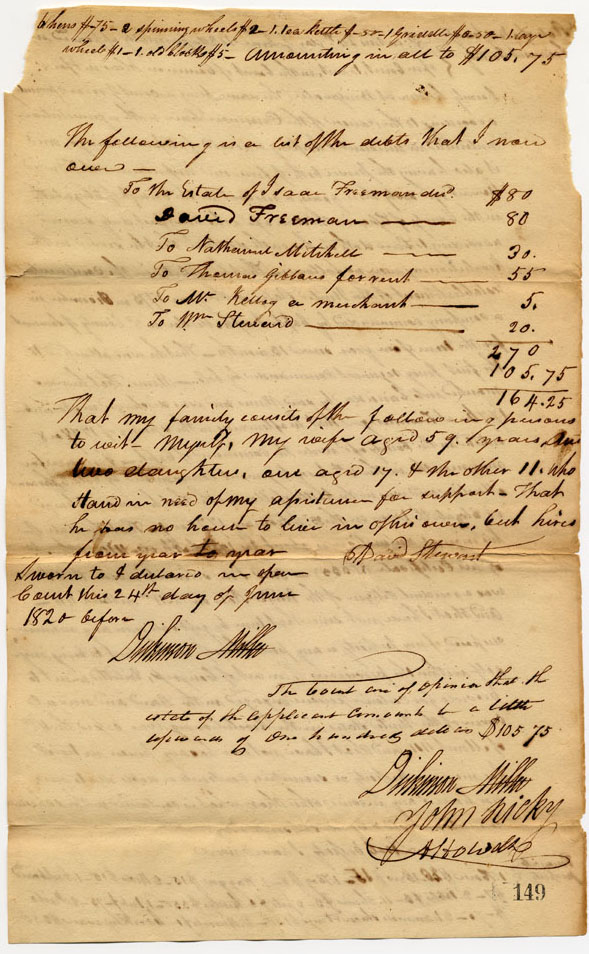 6 hens $-75- 2 spinning wheels $2- 1. tea kettle $-50- 1 Griddle $0.50- 1.
wheel $1- 1. old clock $5- amounting in all to $105.75
The following is a list of the debts that I now
owe —
To the Estate of Isaac Freeman decd. $80
David Freeman —— 80
To Nathaniel Mitchell — 30.
To Thomas Gibbans for rent —— 55
To Mr. Kellog a merchant —— 5.
To Wm Steward —— 20.
270
105.75
164.25
That my family consists of the following persons
to wit- Myself, My wife aged 59. years,
two daughters, one aged 17. & the other 11. who
stand in need of my assistance for support- That
he has no house to live in of his own, but hires
from year to year
David Steward
Sworn to & declared in open
Court this 24th day of June
1820 before
Dickinson Miller
The Court are of opinion that the
estate of the applicant amounts to a little
upwards of One hundred dollars $105 75
Dickinson Miller
John Dicky
149